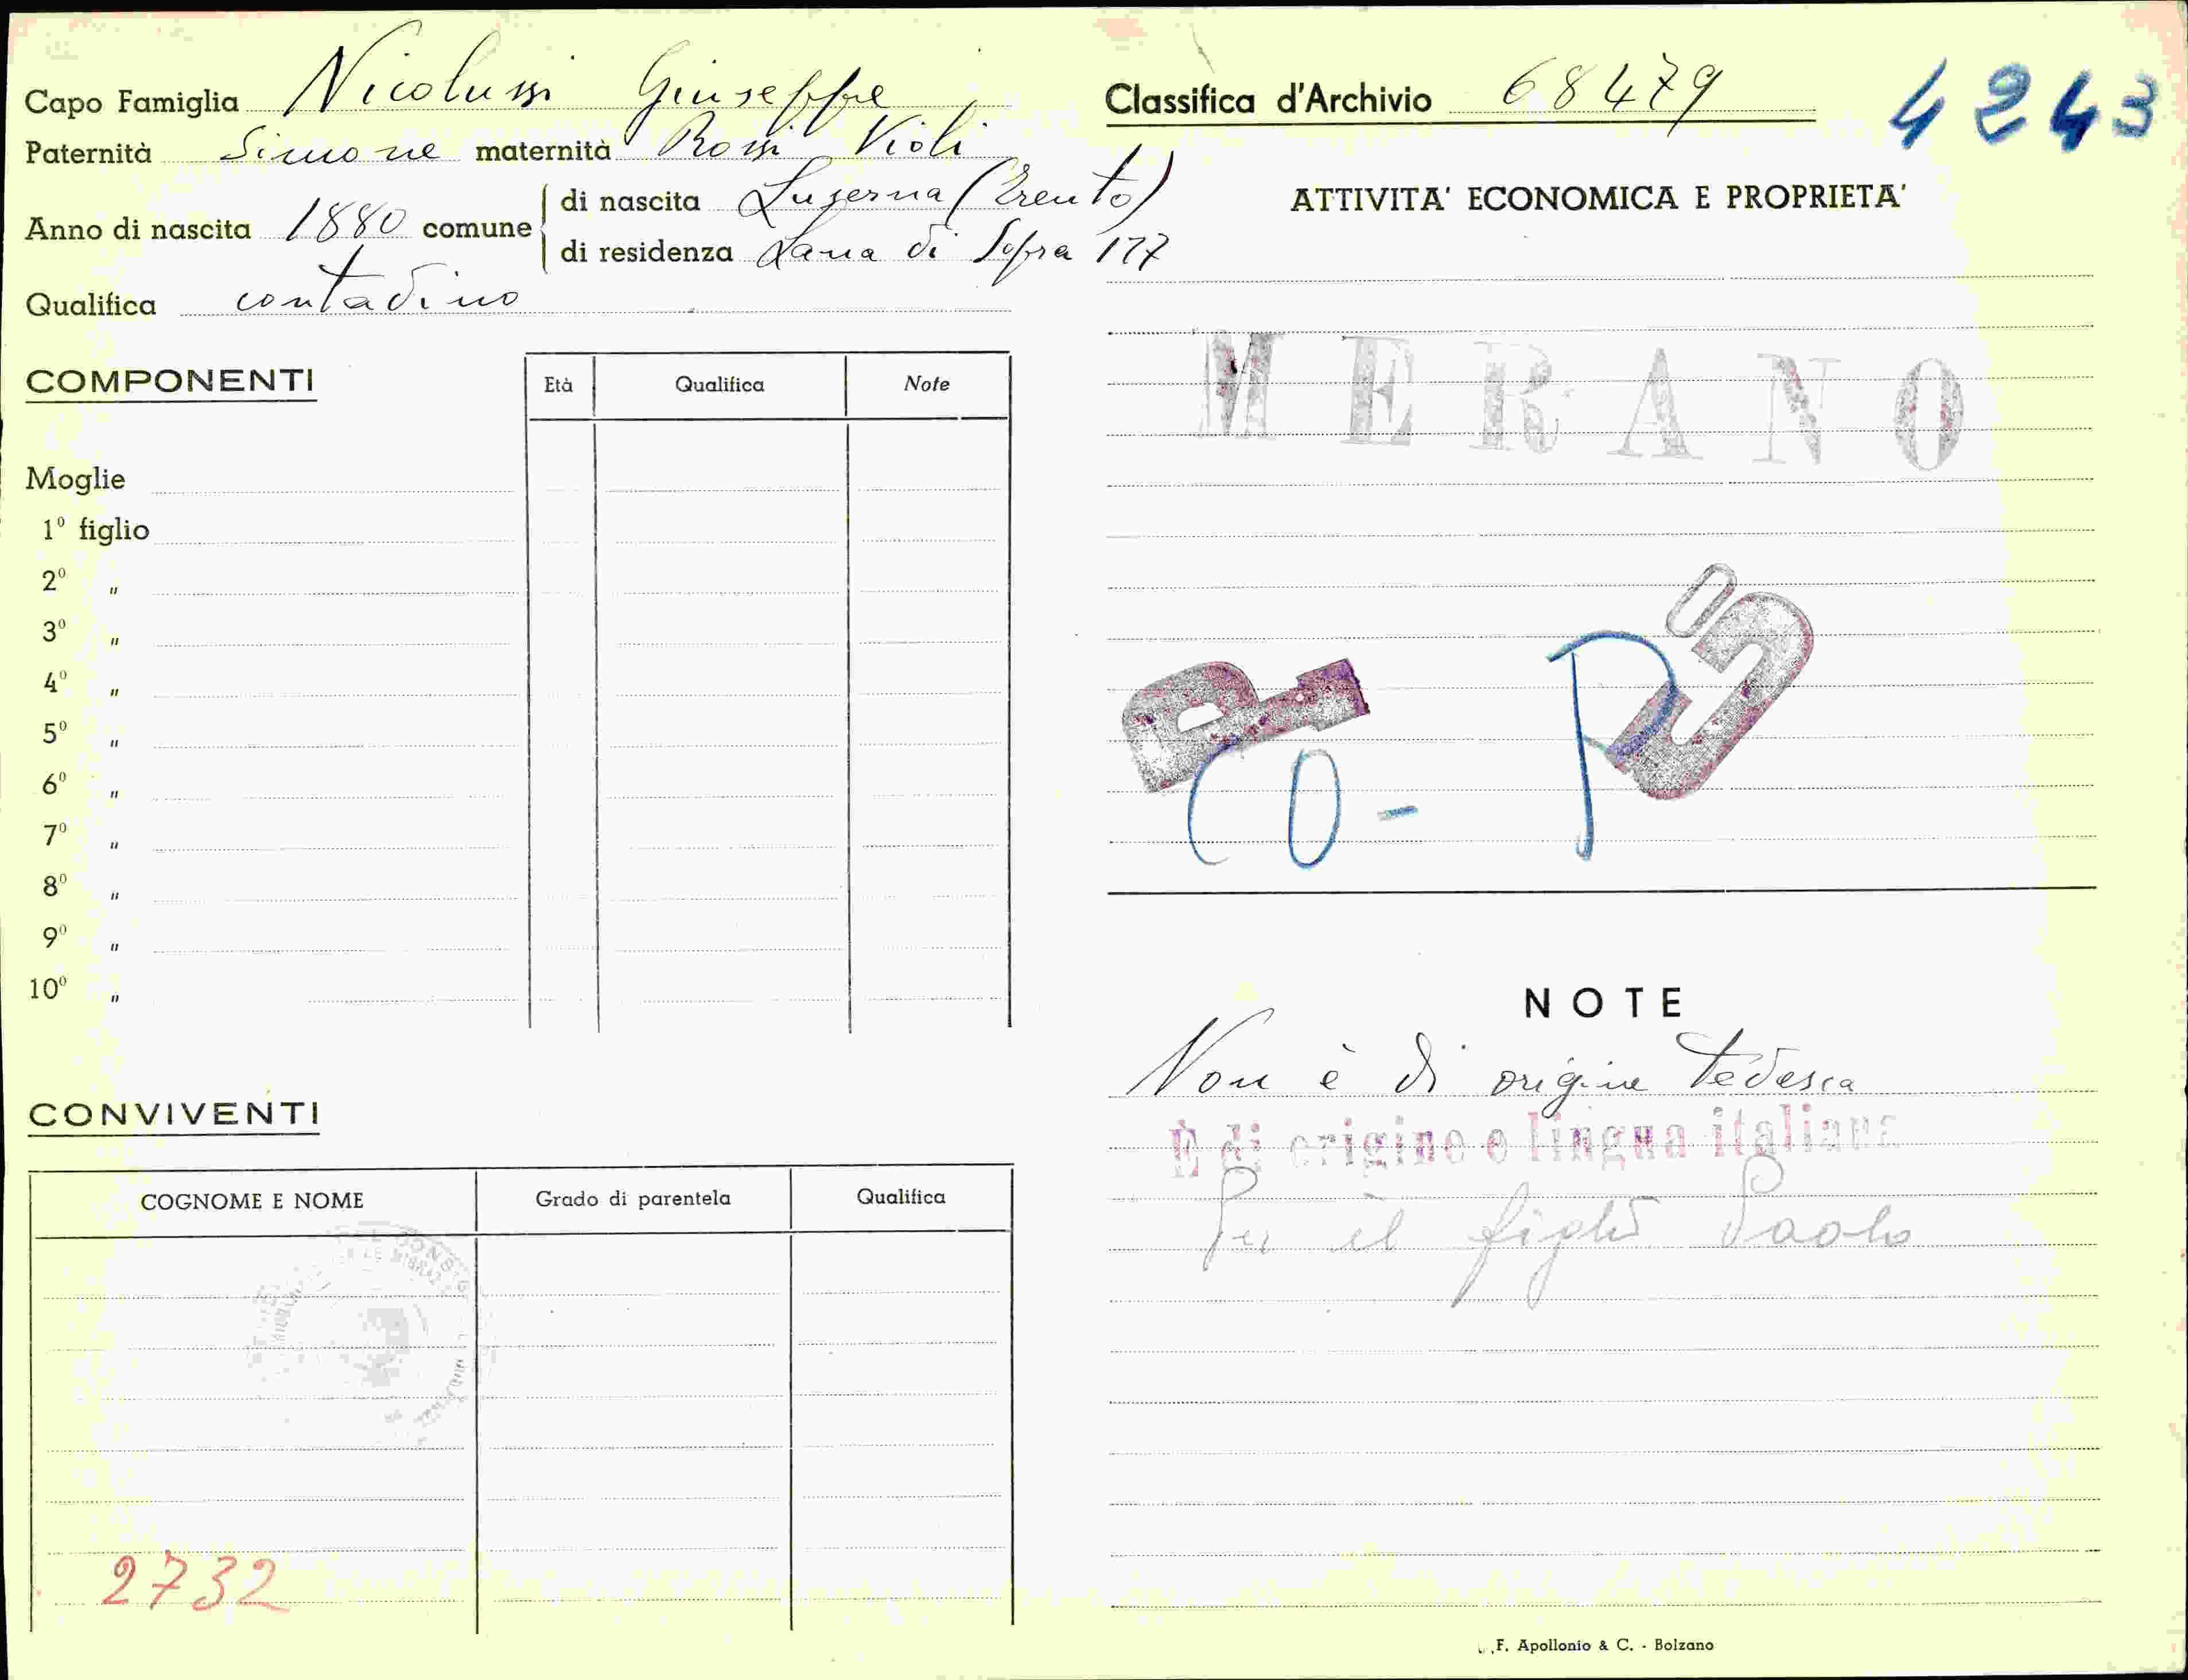 Capo Famiglia Nicolussi Giuseppe
Paternità Simone maternità Rossi Violi
Anno di nascita 1880 comune di nascita Luserna (Trento)
di residenza Lana di Sopra 177
Qualifica contadino
COMPONENTI
Età Qualifica Note
Moglie
1º figlio
2º "
3º "
4º "
5º "
6º "
7º "
8º "
9º "
10º "
CONVIVENTI
COGNOME E NOME Grado di parentela Qualifica
2732
Classifica d'Archivio 68479 4243
ATTIVITA' ECONOMICA E PROPRIETA'
MERANO
R U
CO - P
NOTE
Non è di origine tedesca
È di origine e lingua italiana
Per il figlio Paolo
F. Apollonio & C. - Bolzano